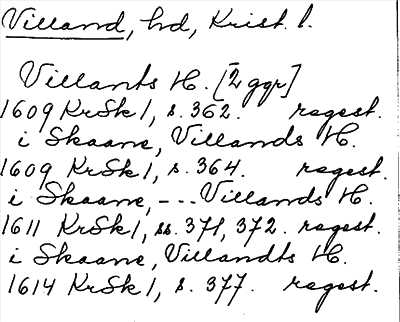 Villand, hd, Krist. l.
Villants H. [2 ggr]
1609 KrSk 1, s. 362. regest.
i Skaane, Villands H.
1609 KrSk 1, s. 364. regest.
i Skaane, --- Villands H.
1611 KrSk 1, ss. 371, 372. regest.
i Skaane, Villandts H.
1614 KrSk 1, s. 377. regest.